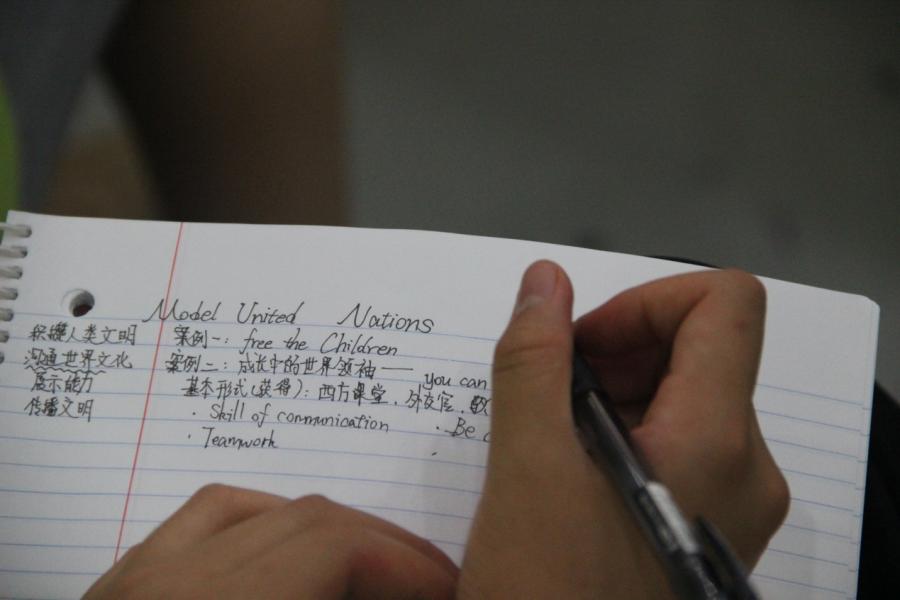 Model United Nations
积攒人类文明
沟通世界文化
展示能力
传播文明
案例一：free the Children
案例二：成长中的世界领袖 —— you can
基本形式(获得)：西方课堂，外交官，
· Skill of communication · Be
· Teamwork
·